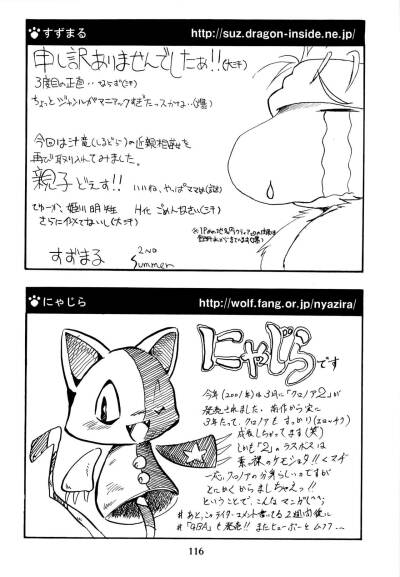 すずまる http://suz.dragon-inside.ne.jp/
申し訳ありませんでしたぁ!!(大汗)
3度目の正直‥ならず(汗)
ちょっとジャンルがマニアックすぎたっスかな‥(爆)
今回は汁竜(しるどら)の近親相姦を
再び取り入れてみました。
親子どぇす!! いいね、やっぱママは
てゆーか、姫川明 H化 ごめんなさい(汗)
さらに似てないし(大汗)
すずまる 2ND Summer
にゃじら http://wolf.fang.or.jp/nyazira/
にゃじらです
今年(2001年)は3月に「クロノア2」が
発売されました。前作から実に
3年たって、クロノアもすっかり(エロッチク)
成長しちゃってます(笑)
しかも「2」のラスボスは
裸のケモショタ!!くマヂ
一応、クロノアの分身らしいのですが
とにかくからましちゃえっ!!
ということで、こんなマンガ(^^;
#あと、このライターコメント書いてる2週間後に
#「GBA」も発売!!またヒューポーとムフフ…
116